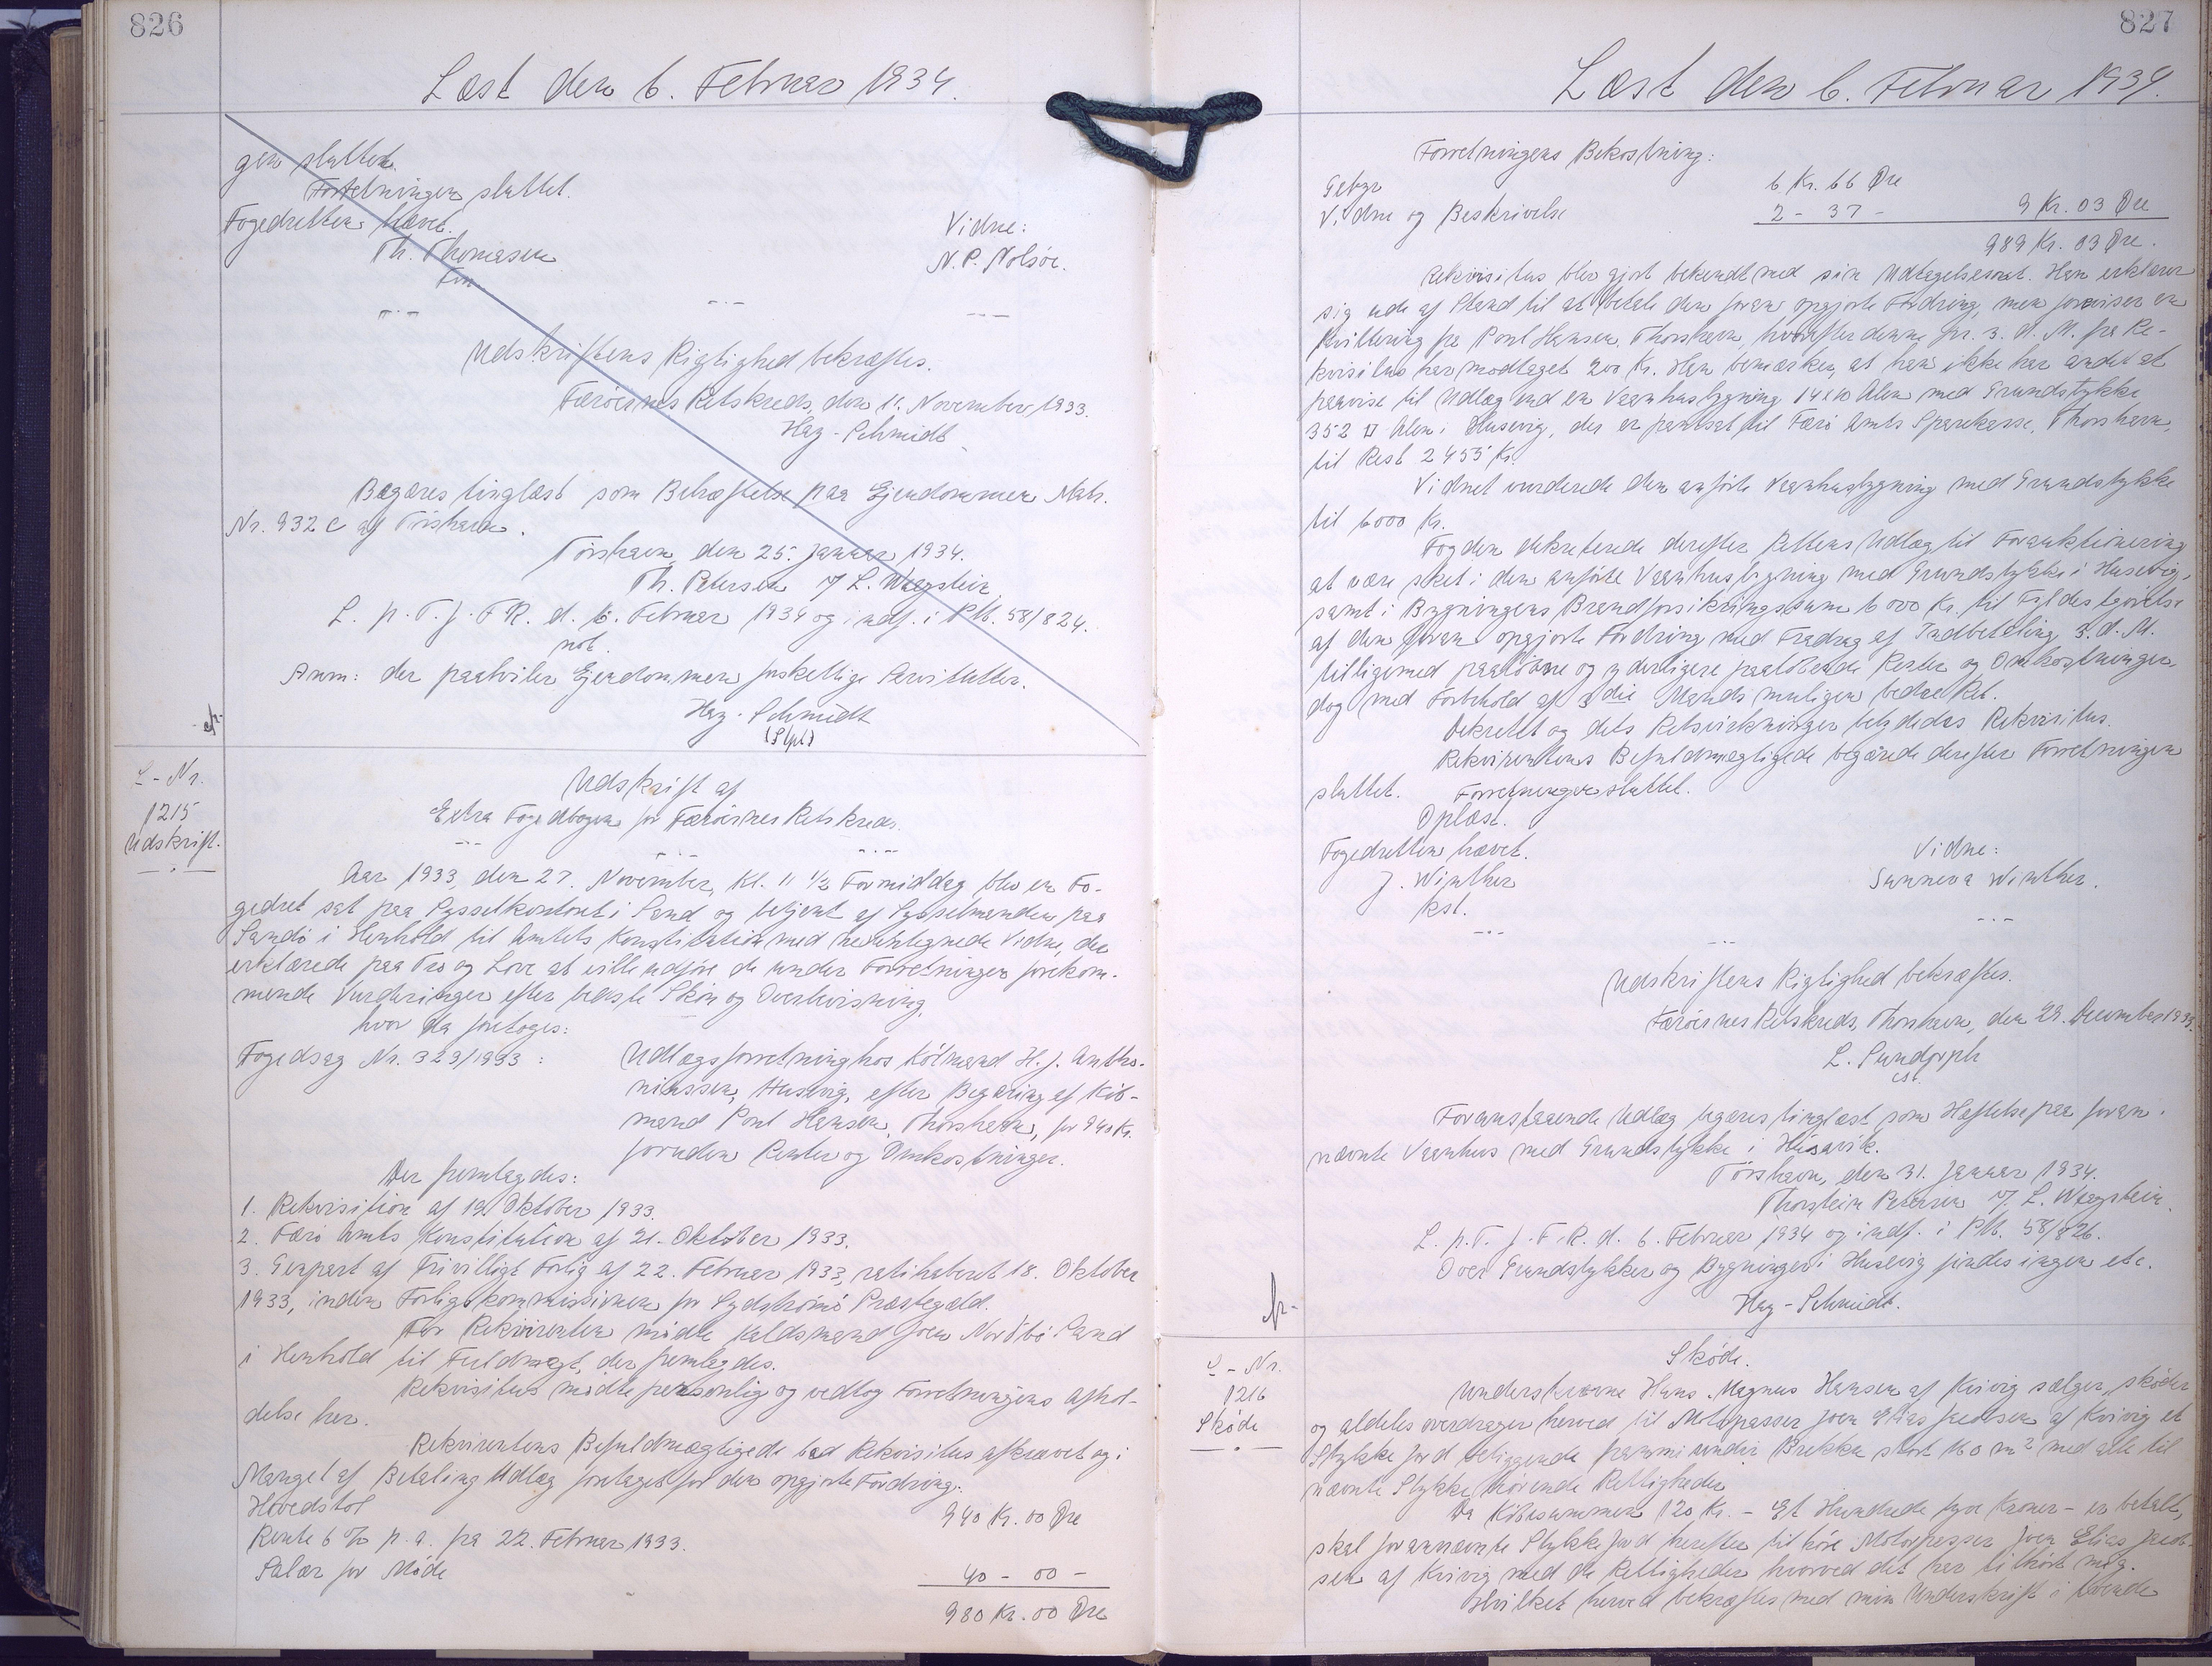 826
Læst den 6. Februar 1934.
gen sluttet.
Forretningen sluttet.
Fogedretten hævet.
Th. Thomasen
Vidne:
N. P. Nolsöe.
Udskriftens Rigtighed bekræftes.
Færöernes Retskreds, den 11. November 1933.
Hag-Schmidt
Begæres tinglæst som Behæftelse paa Ejendommen Matr.
Nr. 932 c af Tórshavn.
Tórshavn, den 25. Januar 1934.
Th. Petersen v/ L. Waagstein
L. p. T. f. F. R. d. 6. Februar 1934 og indf. i P.M. 58/824.
not.
Anm: der paahviler Ejendommen forskellige Servitutter.
Hag-Schmidt
L-Nr.
1215
Udskrift.
Udskrift af
Extra Fogedbogen for Færöernes Retskreds.
Aar 1933, den 27. November, Kl. 11 1/2 Formiddag blev en Fo-
gedret sat paa Sysselkontoret i Sand og betjent af Sysselmanden paa
Sandö i Henhold til Amtets Konstitution med nedentegnede Vidne, der
erklærede paa Tro og Love at ville udföre de under Forretningen forekom-
mende Vurderinger efter bedste Skön og Overbevisning,
hvor da foretoges:
Fogedsag Nr. 329/1933:
Udlægsforretning hos Kölmand H. J. Antho-
niussen, Husevig, efter Begæring af Köb-
mand Poul Hansen, Thorshavn, for 940 Kr.
foruden Renter og Omkostninger.
Der fremlagdes:
1. Rekvisition af 19. Oktober 1933.
2. Færö Amts Konstitution af 21. Oktober 1933.
3. Genpart af Frivilligt Forlig af 22. Februar 1933, ratihaberet 18. Oktober
1933, inden Forligskommissionen for Sydströmö Præstegæld.
For Rekvirenten mödte Valdsmand Joen Nordbö Sand
i Henhold til Fuldmagt, der fremlagdes.
Rekvisitus mödte personlig og vedtog Forretningens Afhol-
delse her.
Rekvirentens Befuldmægtigede bad Rekvisitus afkrævet og i
Mangel af Betaling Udlæg foretaget for den opgjorte Fordring:
Hovedstol
940 Kr. 00 Øre
Rente 6 % p. a. fra 22. Februar 1933.
Salær for Möde
40 - 00 -
980 Kr. 00 Øre
827
Læst den 6. Februar 1934.
Forretningens Bekostning:
Gebyr
6 Kr. 66 Øre
Vidne og Beskrivelse
2 - 37 -
9 Kr. 03 Øre
989 Kr. 03 Øre.
Rekvisitus blev gjort bekendt med sin Udtagelsesret. Han erklærer
sig ude af Stand til at betale den foran opgjorte Fordring, men foreviser en
Kvittering fra Poul Hansen, Thorshavn, hvorefter denne fr. 3. d. M. fra Re-
kvisitus har modtaget 200 Kr. Han bemærker, at han ikke har andet at
paavise til Udlæg end en Vaanhusbygning 14x10 Alen med Grundstykke
352 □ Alen i Husevig, der er pantsat til Færö Amts Sparekasse, Thorshavn,
til Rest 2455 Kr.
Vidnet vurderede den anförte Vaanhusbygning med Grundstykke
til 6000 Kr.
Fogden dekreterede derefter Rettens Udlæg til Foranktionering
at være sket i den anförte Vaanhusbygning med Grundstykke i Husevig,
samt i Bygningens Brandforsikringssum 6000 Kr. til Fyldestgörelse
af den foran opgjorte Fordring med Fradrag af Indbetaling 3. d. M.
tilligemed paalöbne og yderligere paalöbende Renter og Omkostninger,
dog med Forbehold af 3die Mands muligen bedre Ret.
Dekretet og dets Retsvirkninger betydedes Rekvisitus.
Rekvirentens Befuldmægtigede begærede derefter Forretningen
sluttet. Forretningen sluttet.
Oplæst.
Fogedretten hævet.
J. Winther
kst.
Vidne:
Sunneva Winther.
Udskriftens Rigtighed bekræftes.
Færöernes Retskreds, Thorshavn, den 29. December 1933.
L. Sundorph
cst.
Foranstaaende Udlæg begæres tinglæst som Hæftelse paa foran-
nævnte Vaanhus med Grundstykke i Húsavík.
Tórshavn, den 31. Januar 1934.
Thorstein Petersen v/ L. Waagstein.
L. p. T. f. F. R. d. 6. Februar 1934 og indf. i P.M. 58/826.
Over Grundstykker og Bygninger i Husevig findes ingen etc.
Hag-Schmidt.
L-Nr.
1216
Sköde
Sköde.
Underskrevne Hans Magnus Hansen af Kvivig sælger, sköder
og aldeles overdrager herved til Motorpasser Joen Elias Jacobsen af Kvivig et
Stykke Jord beliggende frammi undir Brekku stort 160 m² med alle til
nævnte Stykke hörende Rettigheder.
Da Köbesummen 120 Kr. - Et Hundrede tyve Kroner - er betalt,
skal forannævnte Stykke Jord herefter tilhöre Motorpasser Joen Elias Jacob-
sen af Kvivig med de Rettigheder hvorved det har tilhört mig.
Hvilket herved bekræftes med min Underskrift i tvende